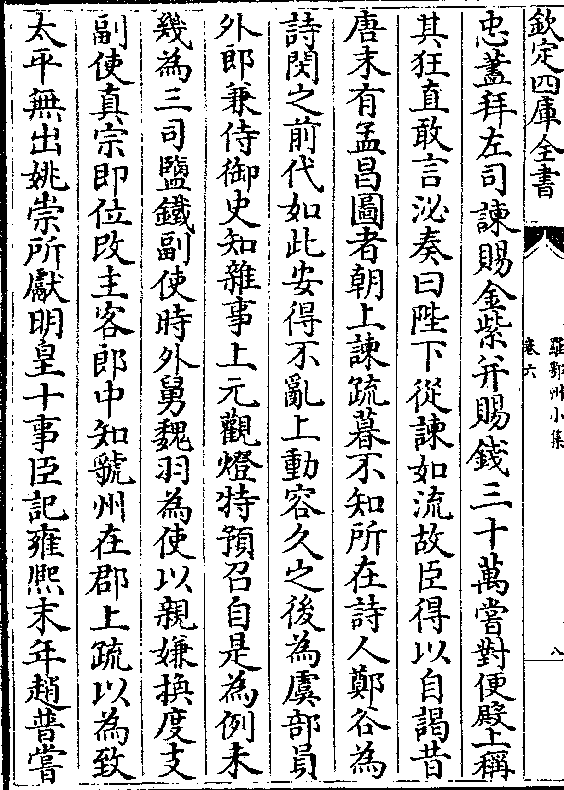 欽定四庫全書
羅鄂州小集
卷六
八
忠藎拜左司諫賜金紫并賜錢三十萬嘗對便殿上稱
其狂直敢言泌奏曰陛下從諫如流故臣得以自謁昔
唐末有孟昌圖者朝上諫疏暮不知所在詩人鄭谷為
詩閔之前代如此安得不亂上動容久之後為虞部員
外郎兼侍御史知雜事上元觀燈特預召自是為例未
幾為三司鹽鐵副使時外舅魏羽為使以親嫌換度支
副使真宗即位改主客郎中知虢州在郡上疏以為致
太平無出姚崇所獻明皇十事臣記雍熙末年趙普嘗